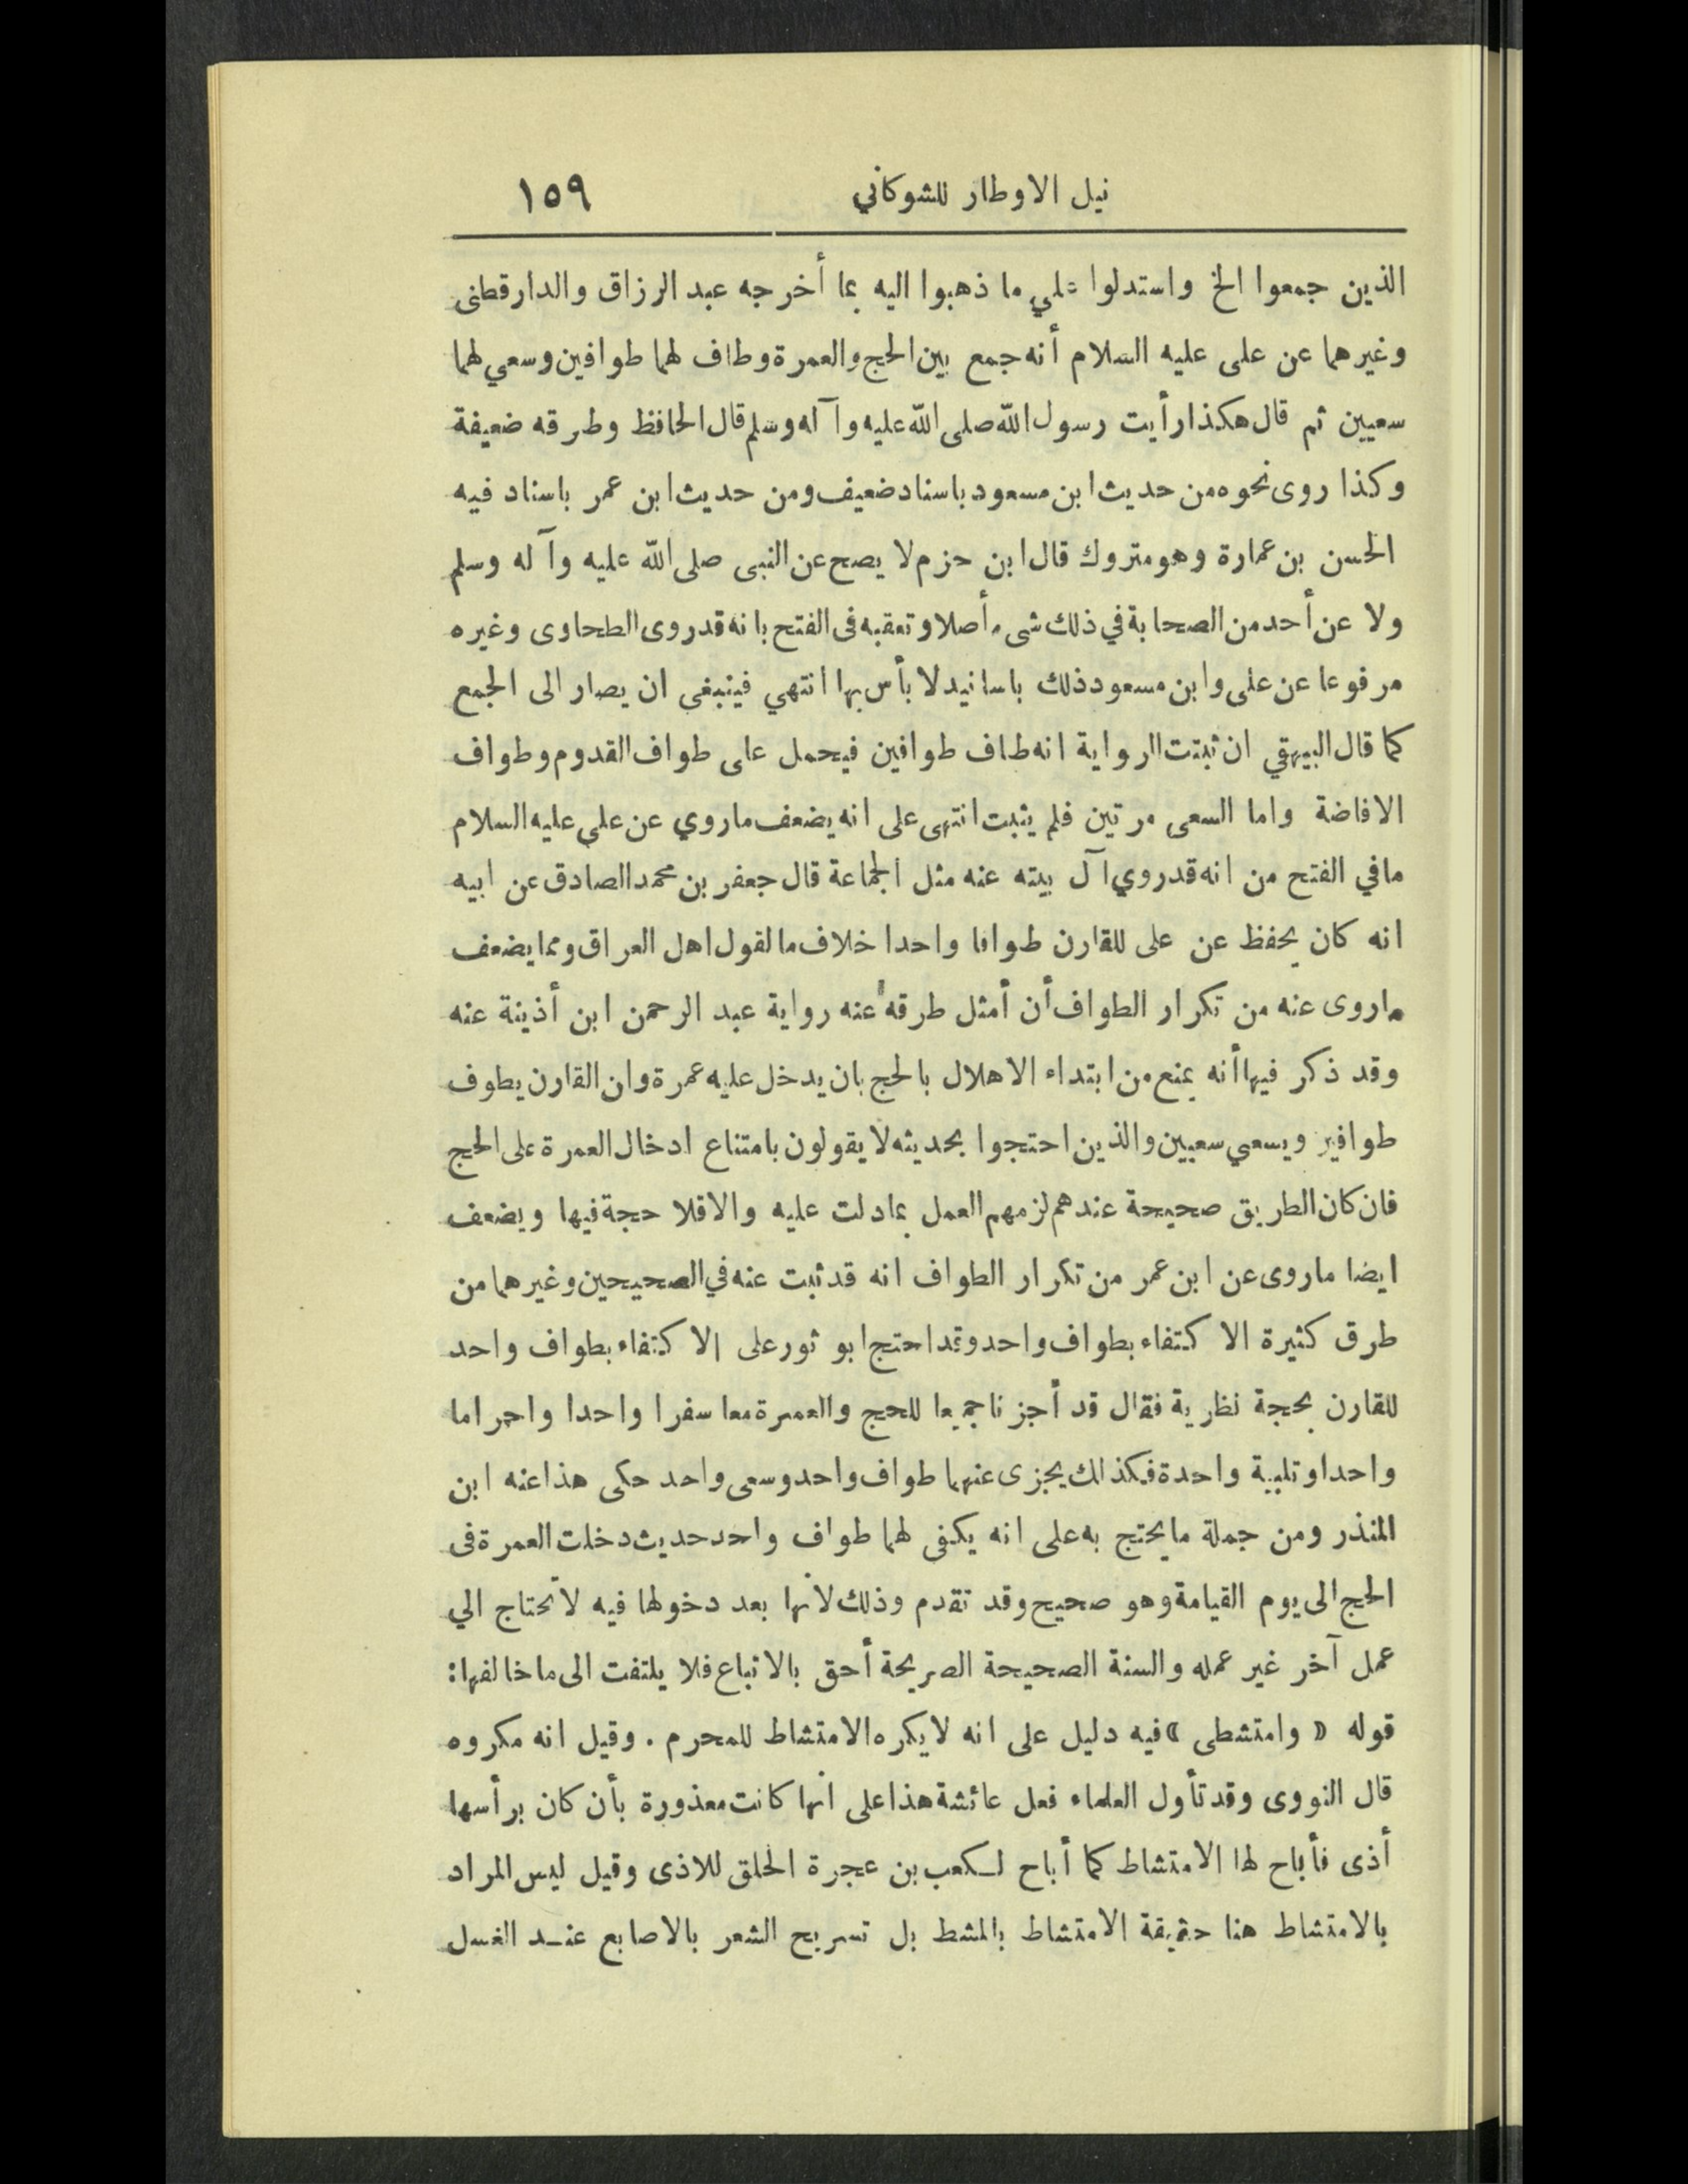 نيل الاوطار للشوكاني ١٥٩
الذين جمعوا الخ واستدلوا على ما ذهبوا اليه بما أخرجه عبد الرزاق والدارقطنى
وغيرهما عن على عليه السلام أنه جمع بين الحج والعمرة وطاف لهما طوافين وسعي لهما
سعيين ثم قال هكذا رأيت رسول الله صلى الله عليه وآله وسلم قال الحافظ وطرقه ضعيفة
وكذا روى نحوه من حديث ابن مسعود باسناد ضعيف ومن حديث ابن عمر باسناد فيه
الحسن بن عمارة وهو متروك قال ابن حزم لا يصح عن النبى صلى الله عليه وآله وسلم
ولا عن أحد من الصحابة في ذلك شىء أصلا وتعقبه فى الفتح بانه قد روى الطحاوى وغيره
مرفوعا عن على وابن مسعود ذلك باسانيد لا بأس بها انتهي فينبغى ان يصار الى الجمع
كما قال البيهقي ان ثبتت الرواية انه طاف طوافين فيحمل على طواف القدوم وطواف
الافاضة واما السعى مرتين فلم يثبت انتهى على انه يضعف ماروي عن على عليه السلام
مافي الفتح من انه قد روي آل بيته عنه مثل الجماعة قال جعفر بن محمد الصادق عن ابيه
انه كان يحفظ عن على للقارن طوافا واحدا خلاف ما لقول اهل العراق ومما يضعف
ماروى عنه من تكرار الطواف أن أمثل طرقه عنه رواية عبد الرحمن ابن أذينة عنه
وقد ذكر فيها أنه يمنع من ابتداء الاهلال بالحج بان يدخل عليه عمرة وان القارن يطوف
طوافين ويسعي سعيين والذين احتجوا بحديثه لا يقولون بامتناع ادخال العمرة على الحج
فان كان الطريق صحيحة عندهم لزمهم العمل بما دلت عليه والا فلا حجة فيها ويضعف
ايضا ماروى عن ابن عمر من تكرار الطواف انه قد ثبت عنه في الصحيحين وغيرهما من
طرق كثيرة الاكتفاء بطواف واحد وقد احتج ابو ثور على الاكتفاء بطواف واحد
للقارن بحجة نظرية فقال قد أجزنا جميعا للحج والعمرة معا سفرا واحدا واحراما
واحدا وتلبية واحدة فكذلك يجزى عنهما طواف واحد وسعى واحد حكى هذا عنه ابن
المنذر ومن جملة ما يحتج به على انه يكفى لهما طواف واحد حديث دخلت العمرة فى
الحج الى يوم القيامة وهو صحيح وقد تقدم وذلك لأنها بعد دخولها فيه لا تحتاج الي
عمل آخر غير عمله والسنة الصحيحة الصريحة أحق بالاتباع فلا يلتفت الى ما خالفها:
قوله « وامتشطى » فيه دليل على انه لا يكره الامتشاط للمحرم . وقيل انه مكروه
قال النووى وقد تأول العلماء فعل عائشة هذا على انها كانت معذورة بأن كان برأسها
أذى فأباح لها الامتشاط كما أباح لكعب بن عجرة الحلق للاذى وقيل ليس المراد
بالامتشاط هنا حقيقة الامتشاط بالمشط بل تسريح الشعر بالاصابع عند الغسل